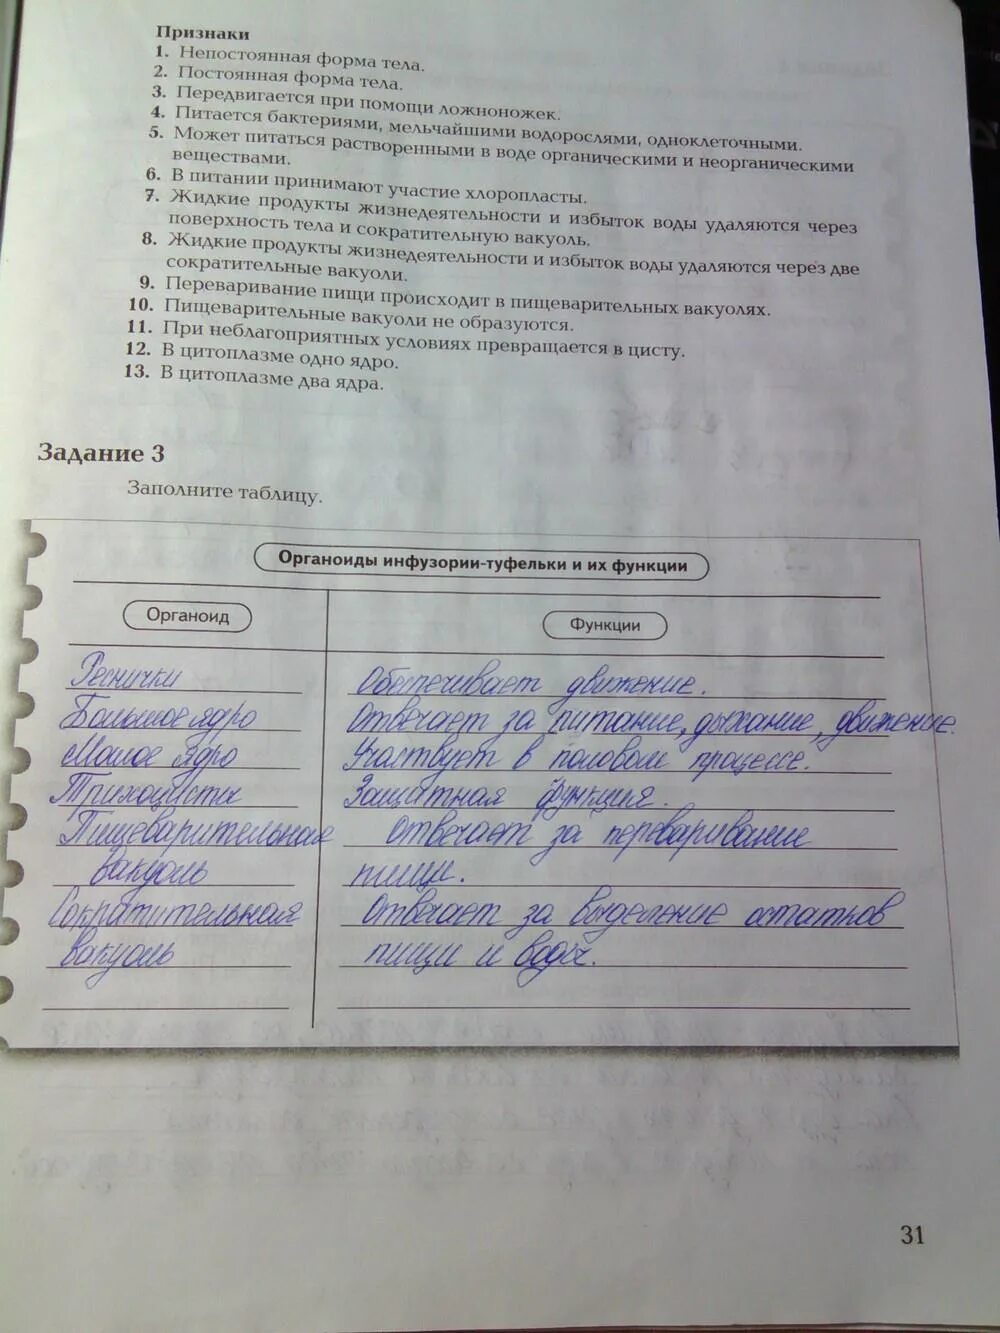 Признаки
1. Непостоянная форма тела.
2. Постоянная форма тела.
3. Передвигается при помощи ложноножек.
4. Питается бактериями, мельчайшими водорослями, одноклеточными.
5. Может питаться растворенными в воде органическими и неорганическими
веществами.
6. В питании принимают участие хлоропласты.
7. Жидкие продукты жизнедеятельности и избыток воды удаляются через
поверхность тела и сократительную вакуоль.
8. Жидкие продукты жизнедеятельности и избыток воды удаляются через две
сократительные вакуоли.
9. Переваривание пищи происходит в пищеварительных вакуолях.
10. Пищеварительные вакуоли не образуются.
11. При неблагоприятных условиях превращается в цисту.
12. В цитоплазме одно ядро.
13. В цитоплазме два ядра.
Задание 3
Заполните таблицу.
Органоиды инфузории-туфельки и их функции
Органоид Функции
Реснички Обеспечивает движение.
Большое ядро Отвечает за питание, дыхание, движение.
Малое ядро Участвует в половом процессе.
Трихоцисты Защитная функция.
Пищеварительная Отвечает за переваривание
вакуоль пищи.
Сократительная Отвечает за выделение остатков
вакуоль пищи и воды.
31